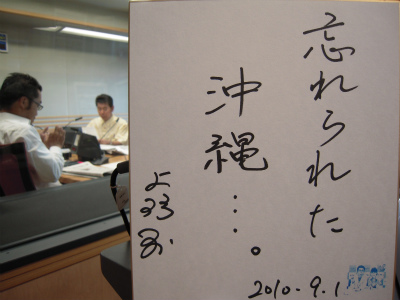 忘れられた
沖縄…。
よろお
2010.9.1